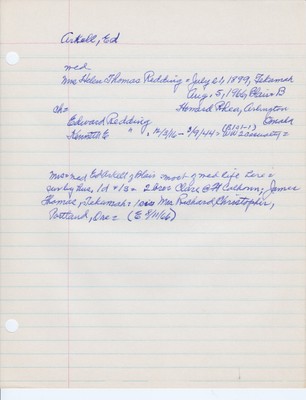 Arkell, Ed
med
Mrs Helen Thomas Redding = July 21, 1899, Tekamah
Aug. 5, 1966, Blair = B
ch = Howard Rhea, Arlington
Edward Redding Omaha
Kenneth E. " , 12/3/16 - 3/9/44 = (B101-1) WW2 casualty =
Mrs = med Ed Arkell of Blair most of med life here =
survby hus, 1d + 1s = 2 bros Clare @ Ft Calhoun, James
Thomas, Tekamah = 1 sis Mrs Richard Christopher,
Portland, Ore = (E 8/11/66)